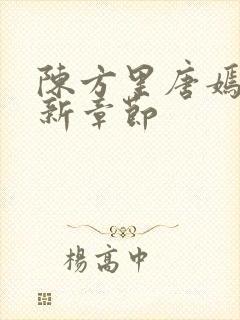 陳方里唐嫣
新章節
楊高中